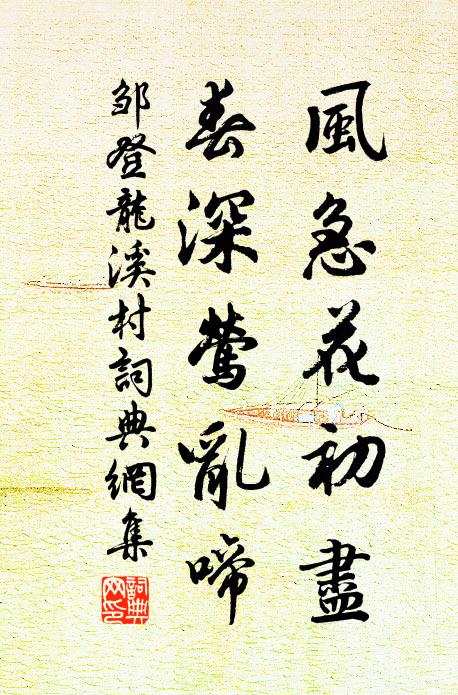 風急花初盡
春深鶯亂啼
邹登龍溪村詞典網集
詞典
网印